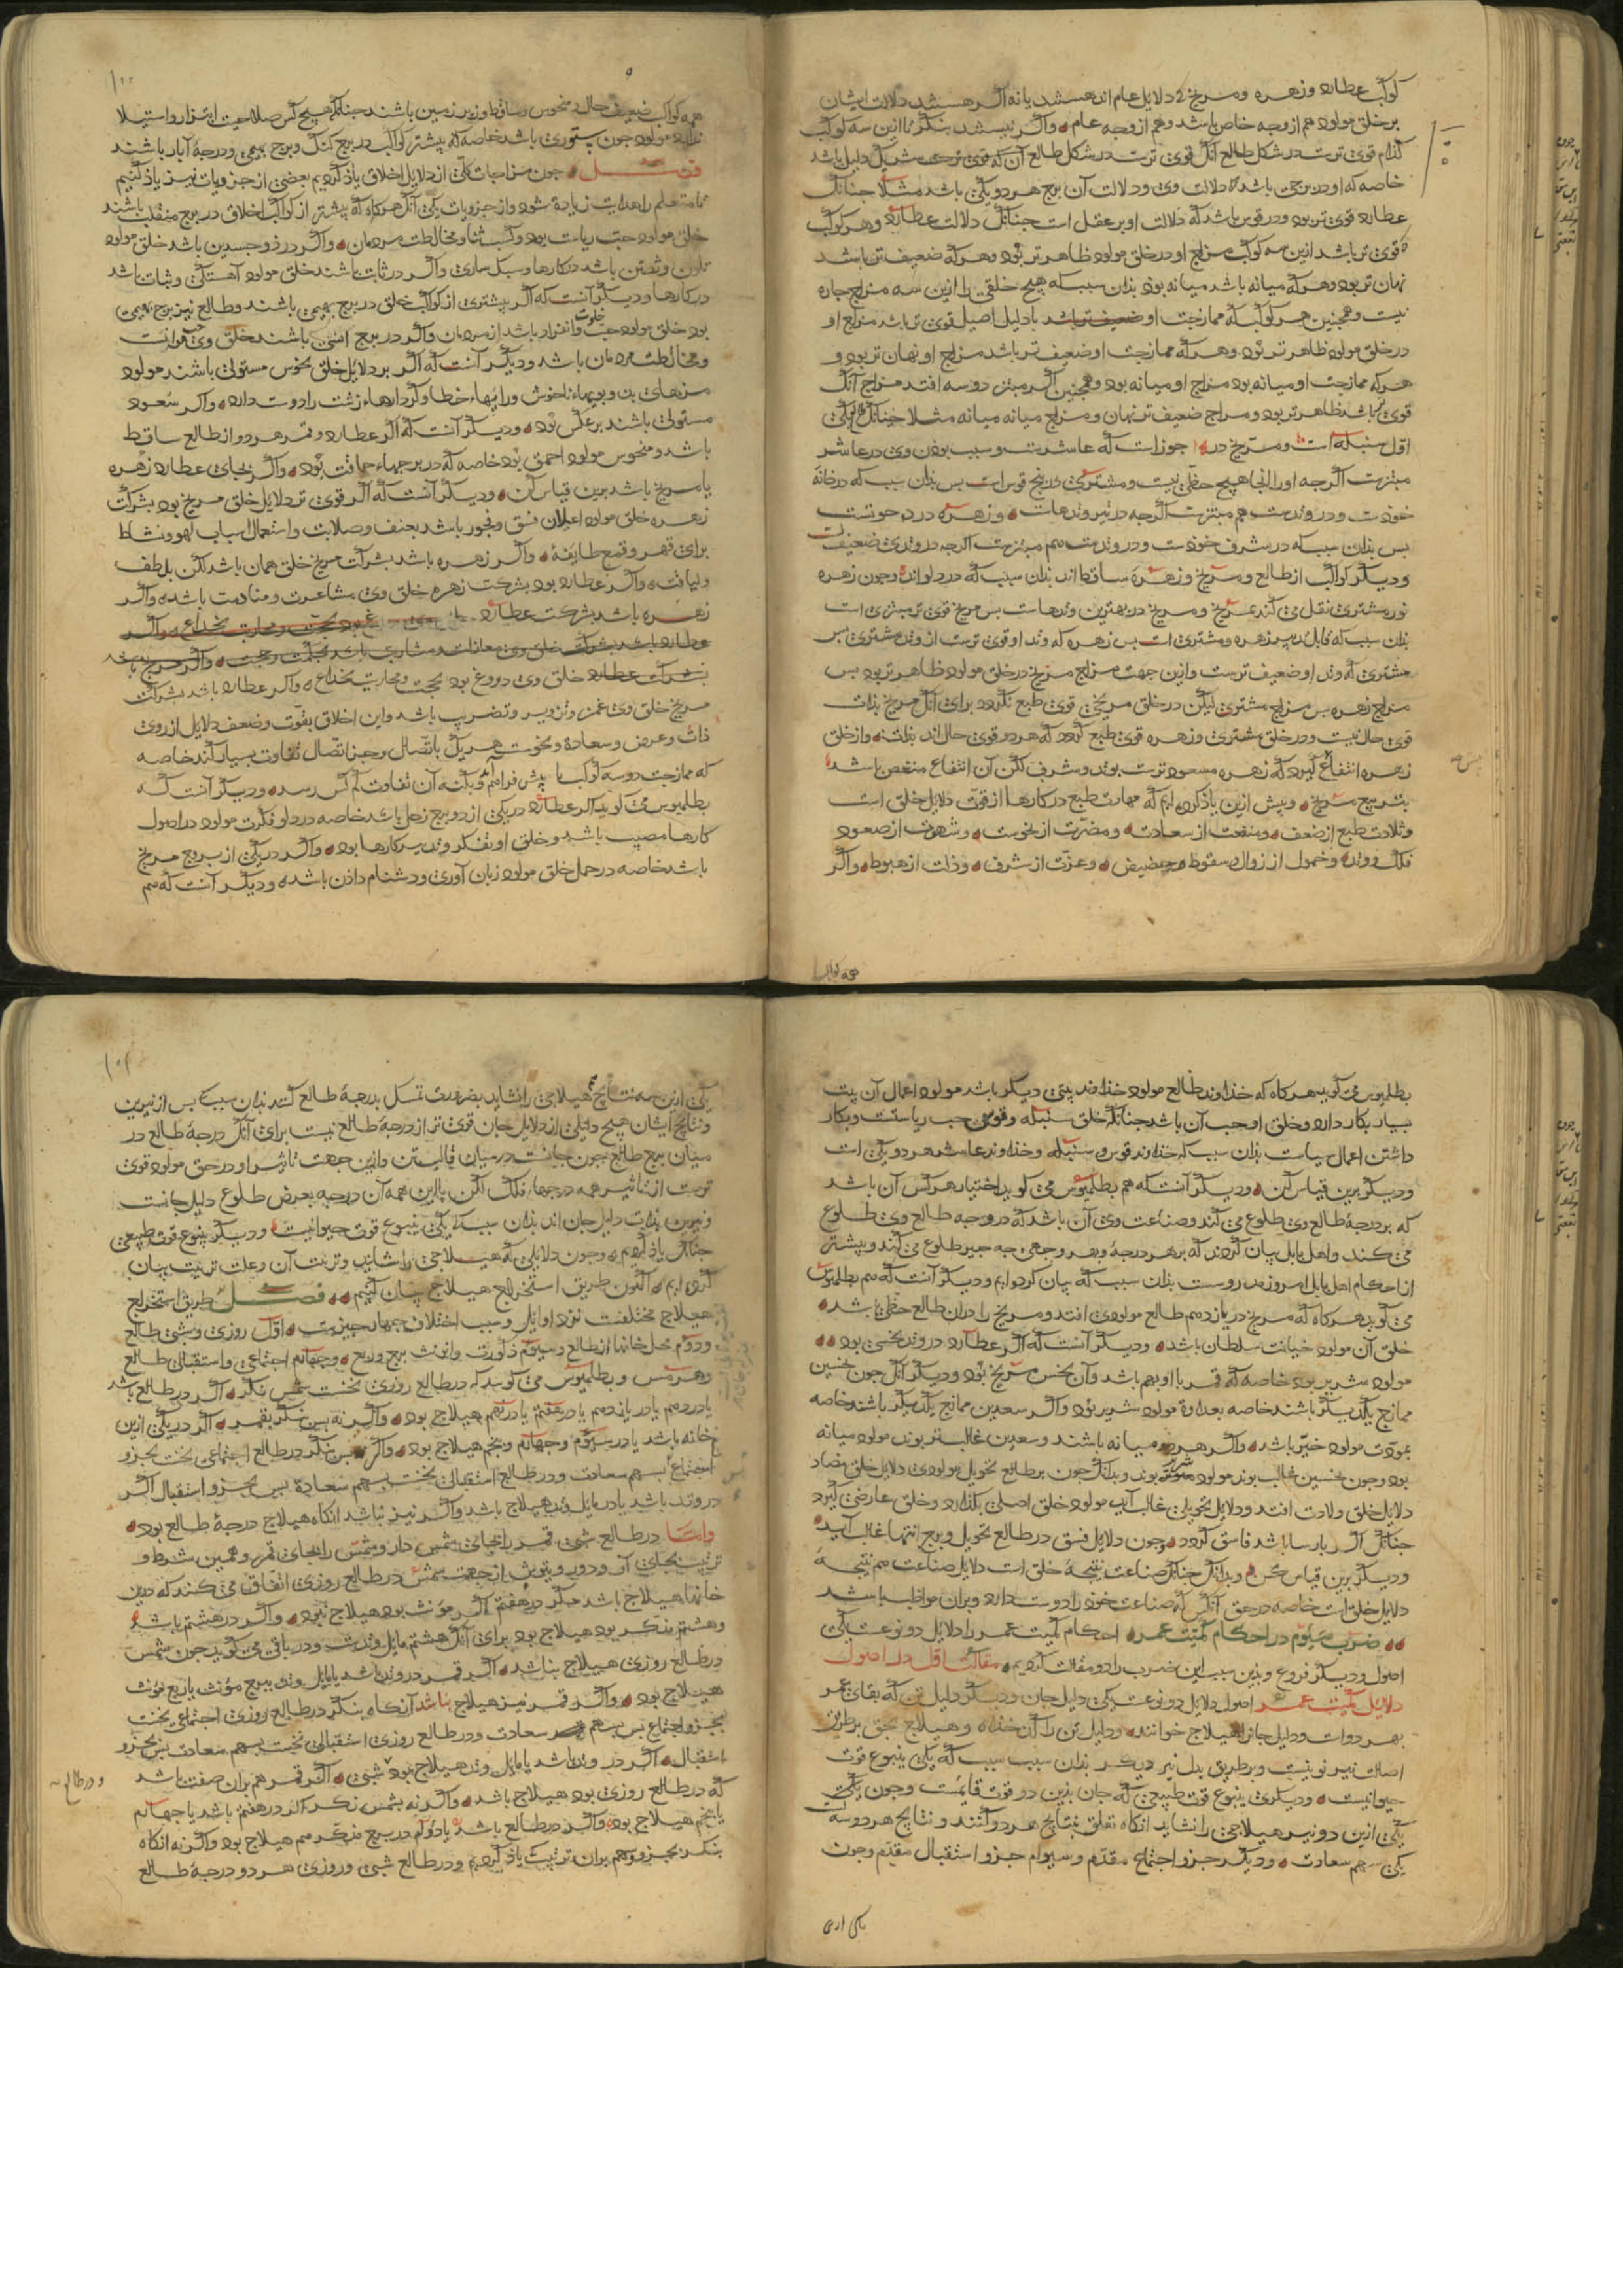 کوکب عطارد و زهره و مریخ از دلایل عام اند هستند یا نه اگر هستند دلالت ایشان
بر خلق مولود هم از وجه خاص باشد و هم از وجه عام و اگر نیستند بنگر تا ازین سه کوکب
کدام قوی ترست در شکل طالع آنک قوی ترست در شکل طالع آن که قوی تر دلیل باشد
خاصه که او در برجی باشد که دلالت وی و دلالت آن برج هر دو یکی باشد مثلا چنانک
عطارد قوی تر بود و در قوس باشد که دلالت او بر عقل است چنانک دلالت عطارد و هر کوکب
که قوی تر باشد ازین سه کوکب مزاج او در خلق مولود ظاهر تر بود و هر که ضعیف تر باشد
نهان تر بود و هر که میانه باشد میانه بود بذان سبب که هیچ خلقی را ازین سه مزاج چاره
نیست و همچنین هر کوکب که ممازجت او با دلیل اصیل قوی تر باشد مزاج او
در خلق مولود ظاهر تر بود و هر که ممازجت او ضعیف تر باشد مزاج او نهان تر بود و
هر که ممازجت او میانه بود مزاج او میانه بود و همچنین اگر مبتز دو سه افتد مزاج آنک
قوی تر باشد ظاهر تر بود و مزاج ضعیف تر نهان و مزاج میانه میانه مثلا چنانک
اول سنبله است و مریخ در جوزا است که عاشرست و سبب بودن وی در عاشر
مبتزست اگر چه او را آنجا هیچ حظی نیست و مشتری در پنج قوس است پس بذان سبب که در خانه
خودست و در وتدست هم مبتزست اگر چه و زهره در حوتست
پس بذان سبب که در شرف خودست و در وتدست هم مبتزست اگر چه در وتدی ضعیفست
و دیگر کواکب از طالع و مریخ و زهره ساقط اند بذان سبب که در دلو اند و چون زهره
نور مشتری نقل می کند بمریخ و مریخ در بهترین وتدهاست پس مریخ قوی تر مبتزی است
مشتری که وتد او ضعیف ترست و ازین جهت مزاج مریخ در خلق مولود ظاهر تر بود پس
مزاج زهره پس مزاج مشتری لیکن در خلق مریخی قوی طبع نگردد برای آنک مریخ بذات
قوی حال نیست و در خلق مشتری و زهره قوی طبع گردد که هر دو قوی حال اند بذات و از خلق
زهره انتفاع گیرد که زهره مسعود ترست بوتد و شرف لکن آن انتفاع منغص باشد
بتربیع مریخ و پیش ازین یاذ کرده ایم که مهارت طبع در کارها از قوت دلایل خلق است
و بلادت طبع از ضعف و منفعت از سعادت و مضرت از نحوست و شهرت از صعود
فلک و وتد و خمول از زوال و سقوط و حضیض و عزت از شرف و ذلت از هبوط و اگر
همه کواکب
همه کواکب ضعیف حال و منحوس و ساقط و زیر زمین باشند چنانک هیچ کس صلاحیت ابتزاز و استیلا
ندارد مولود چون ستوری باشد خاصه که پیشتر کواکب در برج گنگ و برج بهیمی و درجهٔ آبار باشند
فصل چون مزاجات کلی از دلایل اخلاق یاذ کردیم بعضی از جزویات نیز یاذ کنیم
تا متعلم را هدایت زیادت شود و از جزویات یکی آنک هر گاه که پیشتر از کواکب اخلاق در برج منقلب باشند
خلق مولود حب ریاست بود و کسب ثنا و مخالطت مردمان و اگر در ذو جسدین باشد خلق مولود
تلون و تفنن باشد در کارها و سبک ساری و اگر در ثابت باشند خلق مولود آهستگی و ثبات باشد
در کارها و دیگر آنست که اگر پیشتری از کواکب خلق در برج بهیمی باشند و طالع نیز برج بهیمی
بود خلق مولود حب خلوت و انفراد باشد از مردمان و اگر در برج انسی باشند خلق وی حب موانست
و مخالطت مردمان باشد و دیگر آنست که اگر بر دلایل خلق نحوس مستولی باشند مولود
مزهای بد و بویهاء ناخوش و رایهاء خطا و کردارهاء زشت را دوست دارد و اگر سعود
مستولی باشند بر عکس بود و دیگر آنست که اگر عطارد و قمر هر دو از طالع ساقط
باشد و منحوس مولود احمق بود خاصه که در برجهاء حماقت بود و اگر بجای عطارد زهره
یا مریخ باشد برین قیاس کن و دیگر آنست که اگر قوی تر دلایل خلق مریخ بود بشرکت
زهره خلق مولود اعلان فسق و فجور باشد بعنف و صلابت و استعمال اسباب لهو و نشاط
برای قهر و قمع طایفه و اگر زهره باشد بشرکت مریخ خلق همان باشد لکن بلطف
و لیاقت و اگر عطارد بود بشرکت زهره خلق وی مشاعرت و منادمت باشد و اگر
زهره باشد بشرکت عطارد
بشرکت عطارد خلق وی دروغ بود بحجت و محاربت بخداع و اگر عطارد باشد بشرکت
مریخ خلق وی غمز و تزویر و تضریب باشد و این اخلاق بقوت و ضعف دلایل از روی
ذات و عرض و سعادة و نحوست هر یک باتصال و جز اتصال تفاوت بسیار کند خاصه
که ممازجت دو سه کوکب پیش فراهم آید و بکنه آن تفاوت کم کس رسد و دیگر آنست که
بطلمیوس می گوید اگر عطارد در یکی از دو برج زحل باشد خاصه در دلو فکرت مولود در اصول
کارها مصیب باشد و خلق او تفکر و تدبیر کارها بود و اگر در یکی از برج مریخ
باشد خاصه در حمل خلق مولود زبان آوری و دشنام داذن باشد و دیگر آنست که هم
بطلمیوس می گوید هر گاه که خذاوند طالع مولود خذاوند بیتی دیگر باشد مولود اعمال آن بیت
بسیار بکار دارد و خلق او حب آن باشد چنانک خلق سنبله و قوس حب ریاستست و بکار
داشتن اعمال سیاست بذان سبب که خذاوند قوس و سنبله و خذاوند عاشر هر دو یکی است
و دیگر برین قیاس کن و دیگر آنست که هم بطلمیوس می گوید اختیار هر کس آن باشد
که بر درجهٔ طالع وی طلوع می کند و صناعت وی آن باشد که در وجه طالع وی طلوع
می کند و اهل بابل بیان کردند که بر هر درجهٔ و بهر وجهی چه چیز طلوع می کند و بیشتر
از احکام اهل بابل امروز مدروست بذان سبب که بیان کرده ایم و دیگر آنست که هم بطلمیوس
می گوید هر گاه که مریخ در یازدهم طالع مولودی افتد و مریخ را در آن طالع حظی باشد
خلق آن مولود خیانت سلطان باشد و دیگر آنست که اگر عطارد در وتد نحسی بود
مولود شریر بود خاصه که قمر با او بهم باشد و آن نحس مریخ بود و دیگر آنک چون نحسین
ممازج یکدیگر باشند خاصه بعداوة مولود شریر بود و اگر سعدین ممازج یکدیگر باشند خاصه
بمودت مولود خیر باشد و اگر هر دو میانه باشند و سعدین غالبتر بوند مولود میانه
بود و چون نحسین غالب بوند مولود بوند و بدانک چون بر طالع تحویل مولودی دلایل خلق مضاد
دلایل خلق ولادت افتد و دلایل تحویلی غالب آید مولود خلق اصلی بگذارد و خلق عارضی گیرد
چنانک اگر پارسا باشد فاسق گردد و چون دلایل فسق در طالع تحویل و برج انتها غالب آید
و دیگر برین قیاس کن و بدانک چنانک صناعت نتیجهٔ خلق است دلایل صناعت هم نتیجهٔ
دلایل خلق است خاصه در حق آنکس که صناعت خوذ را دوست دارد و بران مواظب باشد
ضرب سیوم در احکام کمیت عمر احکام کمیت عمر را دلایل دو نوعست یکی
اصول و دیگر فروع و بذین سبب این ضرب را دو مقالت کردیم مقالت اول در اصول
دلایل کمیت عمر اصول دلایل دو نوعست یکی دلیل جان و دیگر دلیل تن که بقای عمر
بهر دو است و دلیل جانرا هیلاج خوانند و دلیل تن را کدخذاه و هیلاج بحق بر طریق
اصالت نیر نوبتست و بر طریق بدل نیر دیگر بذان سبب که یکی ینبوع قوت
حیوانیست و دیگری ینبوع قوت طبیعی که جان بذین دو قوت قایمست و چون یکی
یکی ازین دو نیر هیلاجی را نشاید آنگاه تعلق بنتایج هر دو کنند و نتایج هر دو سه است
یکی سهم سعادت و دیگر جزو اجتماع مقدم و سیوم جزو استقبال مقدم و چون
یکی ازین سه نتایج هم هیلاجی را نشاید بضرورت تمسک بدرجهٔ طالع کنند بذان سبب که پس از نیرین
و نتایج ایشان هیچ دلیلی از دلایل جان قوی تر از درجهٔ طالع نیست برای آنک درجهٔ طالع در
میان برج طالع چون جانست در میان قالب تن و ازین جهت تاثیر او در حق مولود قوی
ترست از تاثیر همه درجهاء فلک لکن با این همه آن درجه بعرض طلوع دلیل جانست
و نیرین بذات دلیل جان اند بذان سبب که یکی ینبوع قوت حیوانیست و دیگر ینبوع قوت طبیعی
چنانک یاذ کردیم و چون دلایلی که هیلاجی را شایند و ترتیب آن و علت ترتیب بیان
کرده ایم اکنون طریق استخراج هیلاج بیان کنیم فصل طریق استخراج
هیلاج مختلفست نزد اوایل و سبب اختلاف چهار چیزست اول روزی و شبی طالع
و دوم محل خانها از طالع و سیوم ذکورت و انوثت برج و ربع و چهارم اجتماعی و استقبالی طالع
و هرمس و بطلمیوس می گویند که در طالع روزی نخست بشمس نگر اگر در طالع باشد
یا در دهم یا در یازدهم یا در هفتم یا در نهم هیلاج بود و اگر نه پس بنگر بقمر اگر در یکی ازین
خانه باشد یا در سیوم و چهارم و پنجم هیلاج بود و اگر نه پس بنگر در طالع اجتماعی نخست بجزو
اجتماع پس بسهم سعادت و در طالع استقبالی نخست بسهم سعادة پس بجزو استقبال اگر
در وتد باشد یا در مایل وتد هیلاج باشد و اگر نیز نباشد آنگاه هیلاج درجهٔ طالع بود
و اما در طالع شبی قمر را بجای شمس دار و شمس را بجای قمر و همین شرط و
ترتیب بجای آر
خانها هیلاج باشد مگر در هفتم اگر مؤنث بود هیلاج نبود و اگر در هشتم باشد
و هشتم مذکر بود هیلاج بود برای آنک هشتم مایل وتدست و در باقی می گوید چون شمس
در طالع روزی هیلاج نباشد اگر قمر در وتد باشد یا مایل وتد ببرج مؤنث یا ربع مؤنث
هیلاج بود و اگر قمر نیز هیلاج نباشد آنگاه بنگر در طالع روزی اجتماعی نخست
بجزو اجتماع پس بسهم سعادت و در طالع روزی استقبالی نخست بسهم سعادت پس بجزو
استقبال اگر در وتد باشد یا مایل وتد هیلاج بود شبی اگر قمر هم بران صفت باشد
و در طالع
که در طالع روزی بود هیلاج باشد و اگر نه بشمس نگر اگر در هفتم باشد یا چهارم
یا پنجم هیلاج بود و اگر در طالع باشد یا دوم در برج مذکر هم هیلاج بود و اگر نه آنگاه
بنگر بجزو هم بران ترتیب یاذ کردیم و در طالع شبی و روزی هر دو درجهٔ طالع